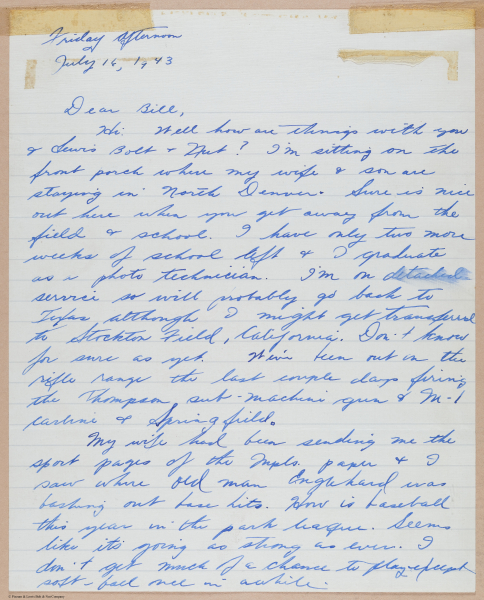 Friday Afternoon
July 16, 1943
Dear Bill,
Hi. Well how are things with you
& Lewis Bolt & Nut? I'm sitting on the
front porch where my wife & son are
staying in North Denver. Sure is nice
out here when you get away from the
field & school. I have only two more
weeks of school left & I graduate
as a photo technician. I'm on detached
service so will probably go back to
Texas although I might get transfered
to Stockton Field, California. Don't know
for sure as yet. We've been out on the
rifle range the last couple days firing
the Thompson sub-machine gun & M-1
carbine & Springfield.
My wife had been sending me the
sport pages of the Mpls. paper & I
saw where old man Englehard was
bashing out base hits. How is baseball
this year in the park league. Seems
like it's going as strong as ever. I
don't get much of a chance to play except
soft-ball once in awhile.